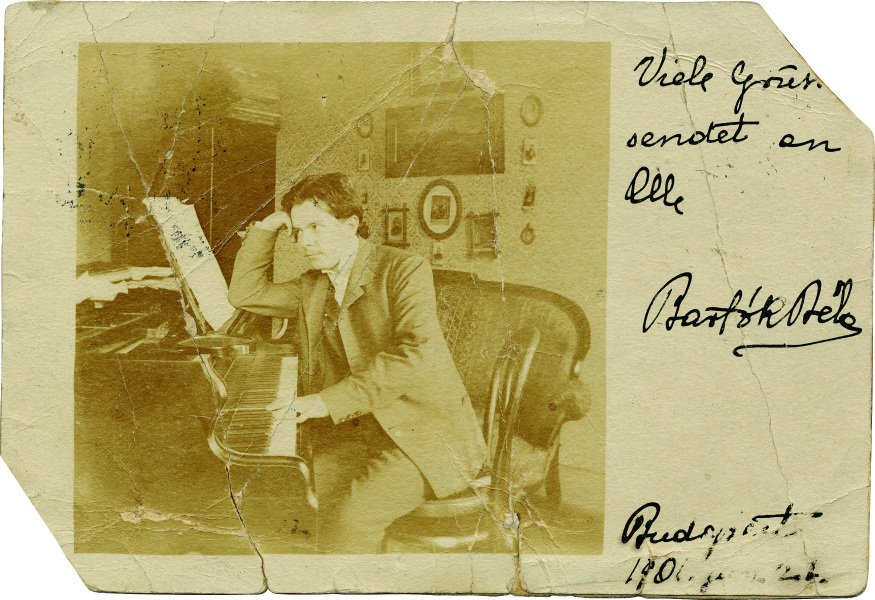 Viele Grüs.
sendet an
Alle
Bartók Béla
Budapest
190